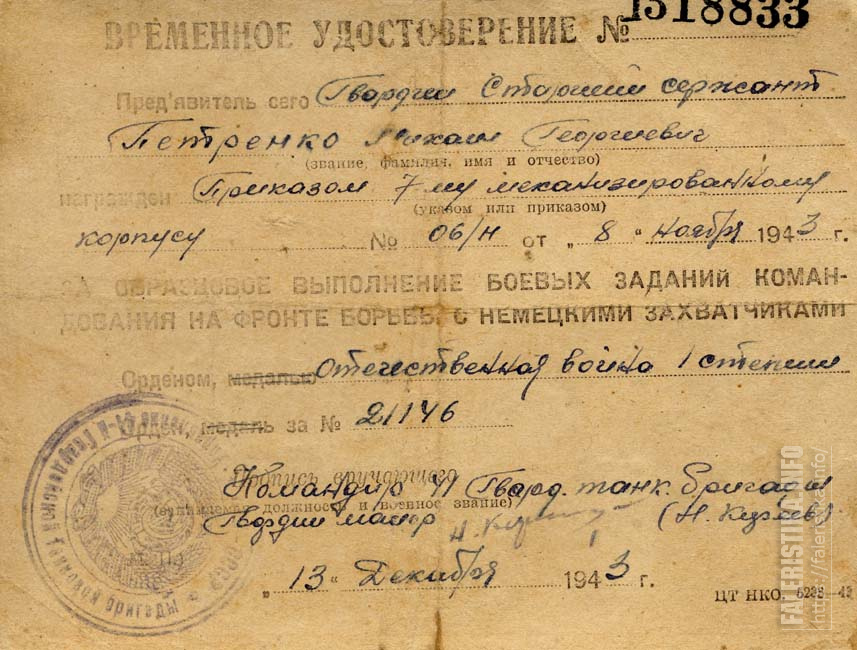 ВРЕМЕННОЕ УДОСТОВЕРЕНИЕ № 1518833
Пред'явитель сего Гвардии Старший сержант
Петренко Михаил Георгиевич
(звание, фамилия, имя и отчество)
награжден Приказом 7-му механизированному
(указом или приказом)
корпусу № 06/н от „ 8 " ноября 1943 г.
ЗА ОБРАЗЦОВОЕ ВЫПОЛНЕНИЕ БОЕВЫХ ЗАДАНИЙ КОМАН-
ДОВАНИЯ НА ФРОНТЕ БОРЬБЫ С НЕМЕЦКИМИ ЗАХВАТЧИКАМИ
Орденом, медалью отечественная война 1 степени
Орден, медаль за № 21146
Подпись вручающего
Командир 41 Гвард. танк. бригады
(занимаемая должность и военное звание)
Гвардии майор
„ 13 " Декабря 1943 г.
ЦТ НКО.
бригады
FALERISTIKA.INFO
https://faleristika.info/